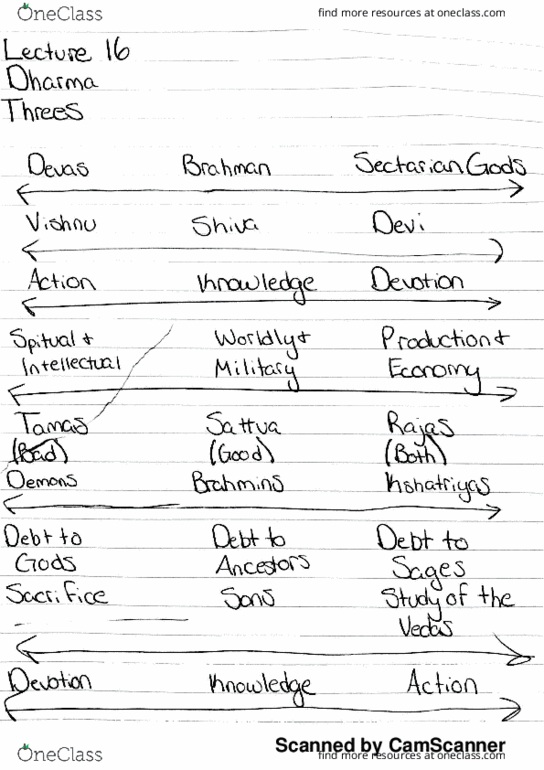 OneClass find more resources at oneclass.com
Lecture 16
Dharma
Threes
Devas Brahman Sectarian Gods
Vishnu Shiva Devi
Action Knowledge Devotion
Spitual + Worldly + Production +
Intellectual Military Economy
Tamas Sattva Rajas
(Bad) (Good) (Both)
Demons Brahmins Kshatriyas
Debt to Debt to Debt to
Gods Ancestors Sages
Sacrifice Sons Study of the
Vedas
Devotion Knowledge Action
Scanned by CamScanner
OneClass find more resources at oneclass.com